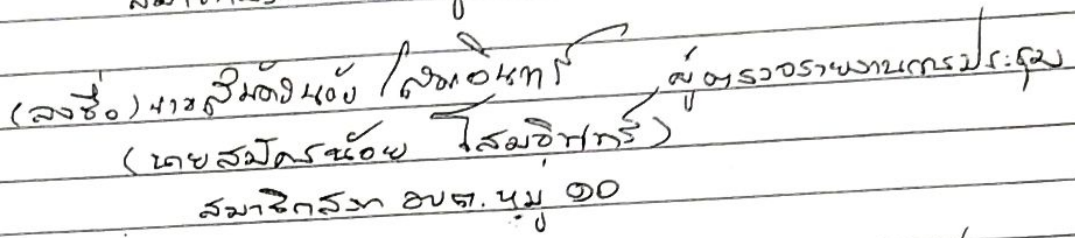 (ลงชื่อ) นายสมัครน้อย โสมอินทร์ ผู้ตรวจรายงานการประชุม
(นายสมัครน้อย โสมอินทร์)
สมาชิกสภา อบต. หมู่ ๑๐